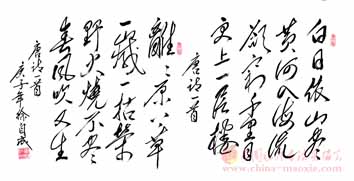 白日依山尽
黄河入海流
欲穷千里目
更上一层楼
唐诗一首
离离原上草
一岁一枯荣
野火烧不尽
春风吹又生
唐诗一首
庚子年徐自成
www.maoxincn.com